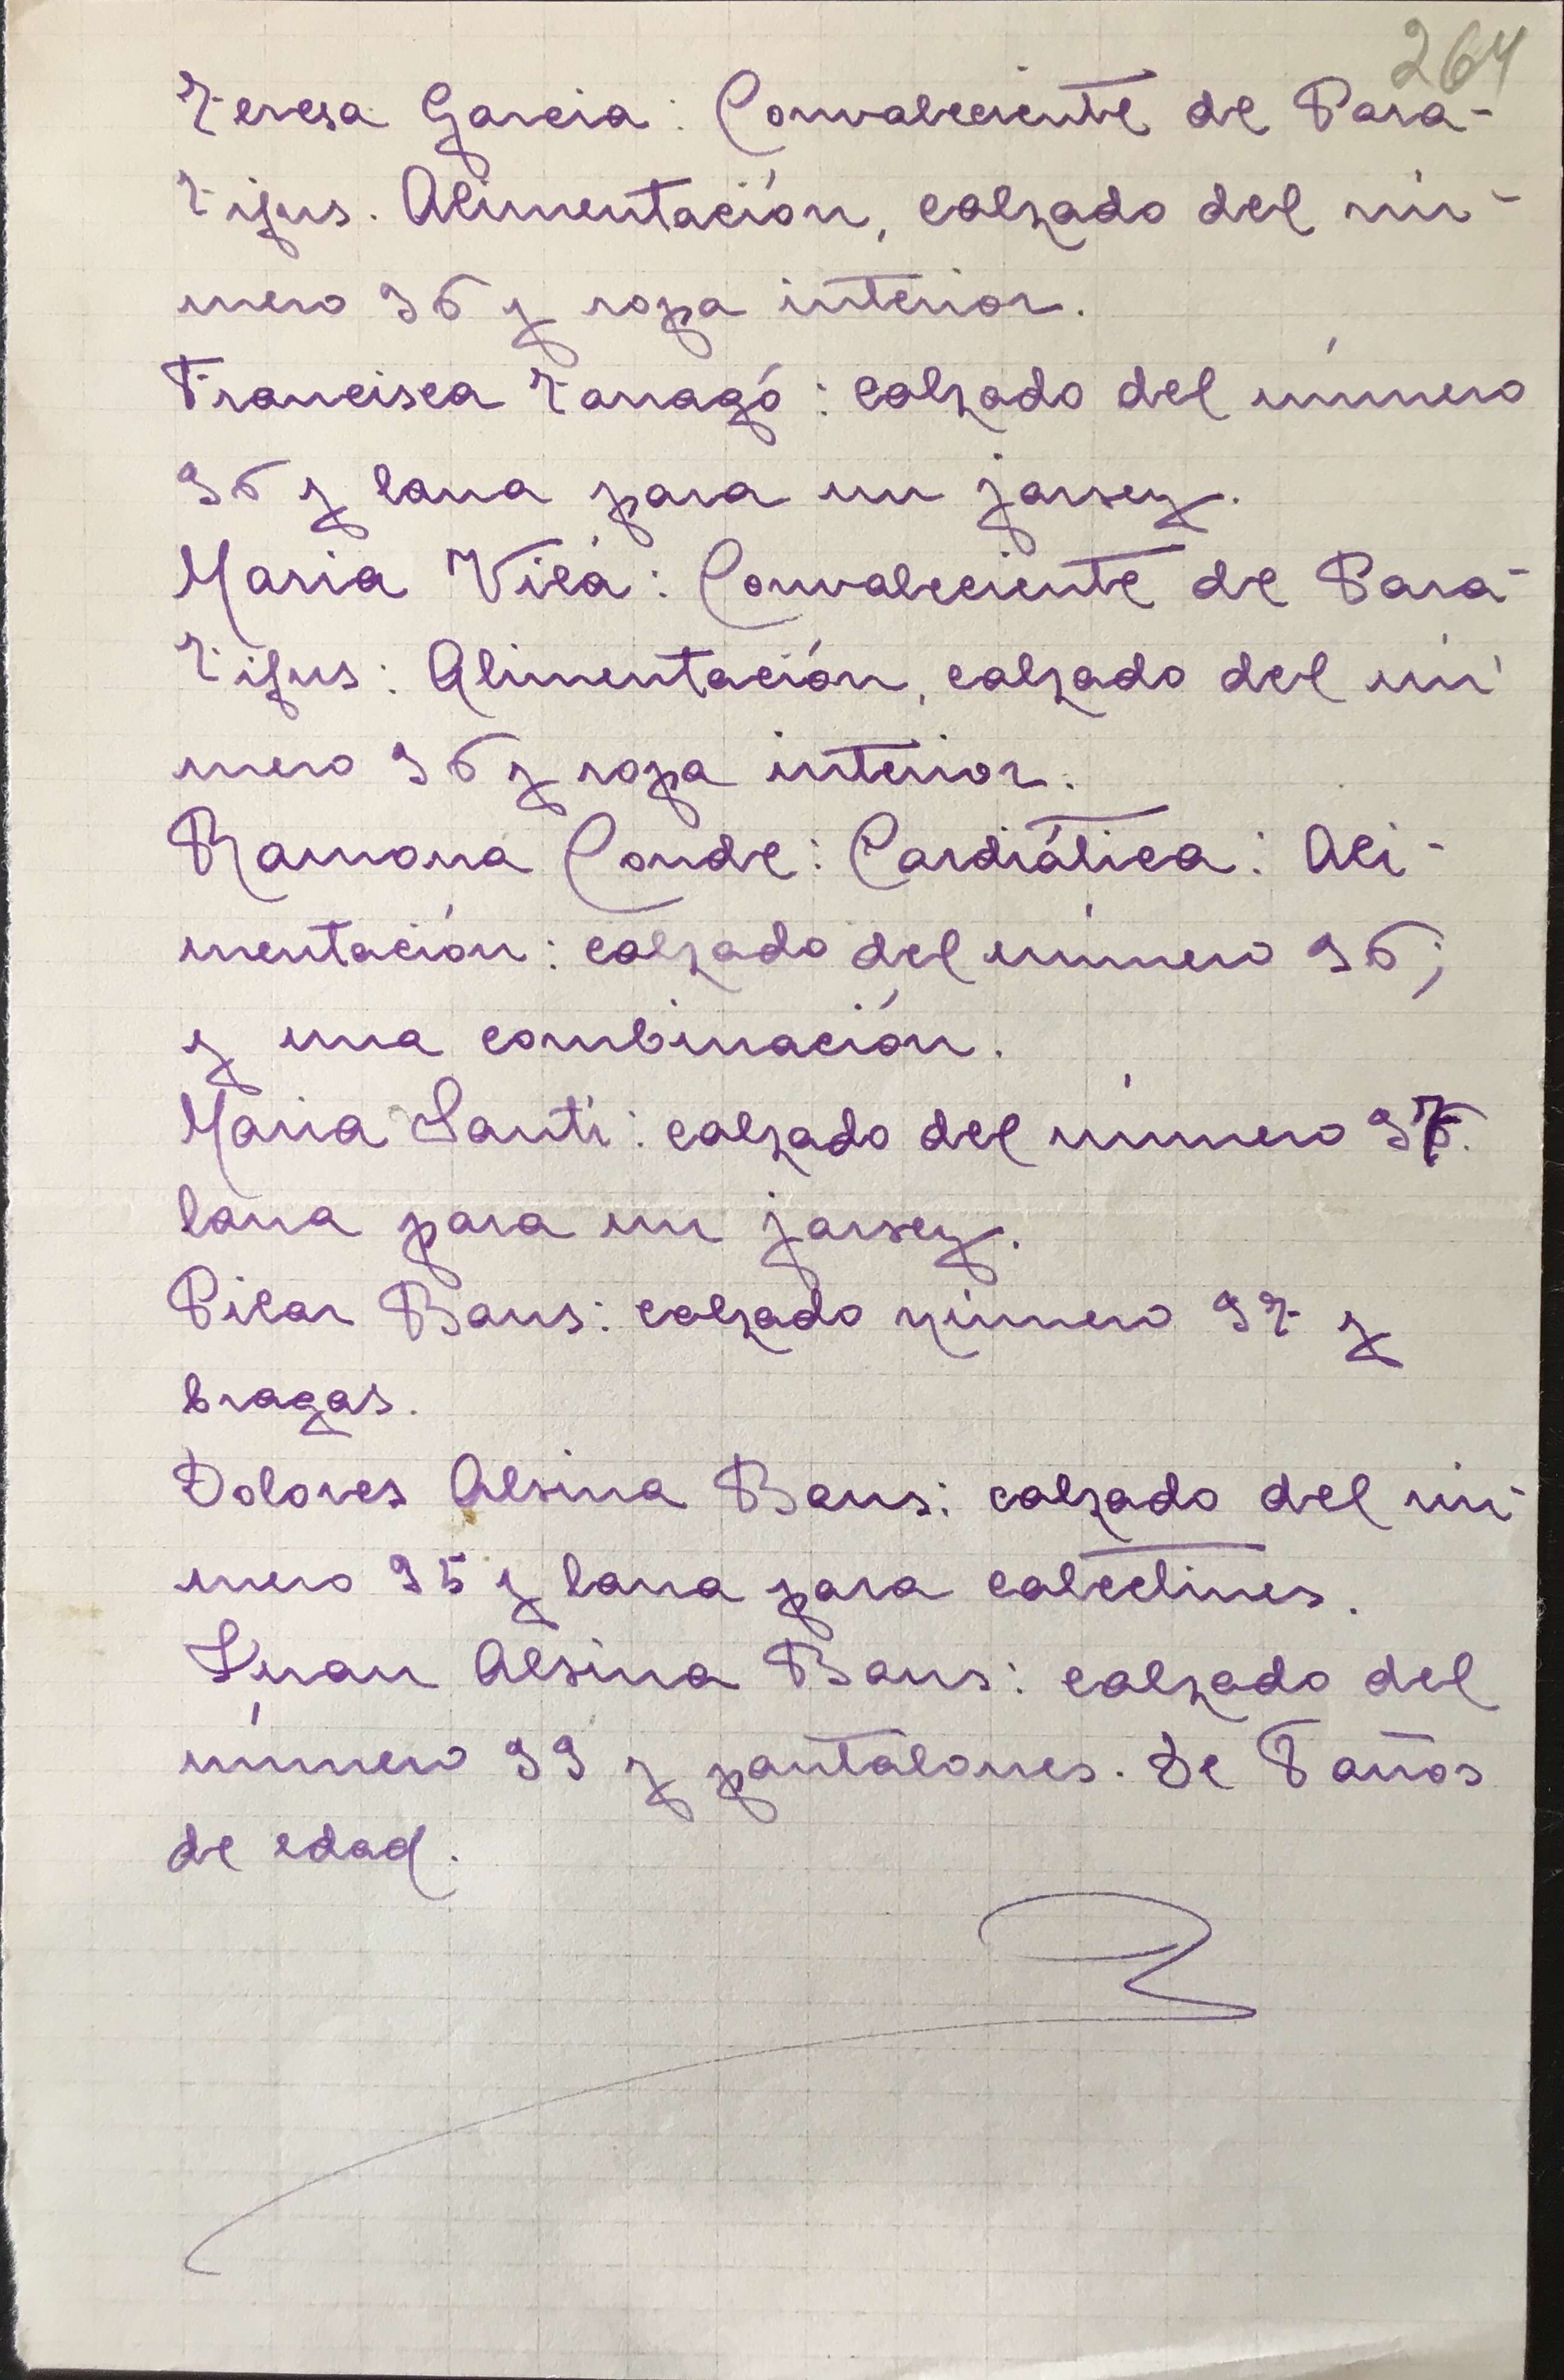 264
Teresa Garcia: Convaleciente de Para-
tifus. Alimentación, calzado del nú-
mero 36 y ropa interior.
Francisca Tarragó: calzado del número
36 y lana para un jarsey.
Maria Vilá: Convaleciente de Para-
tifus: Alimentación, calzado del nú-
mero 36 y ropa interior.
Ramona Conde: Cardiática: Ali-
mentación: calzado del número 36;
y una combinación.
Maria Santi: calzado del número 37.
lana para un jarsey.
Pilar Baus: calzado número 37 y
bragas.
Dolores Alsina Baus: calzado del nú-
mero 35 y lana para calcetines.
Juan Alsina Baus: calzado del
número 33 y pantalones. De 8 años
de edad.